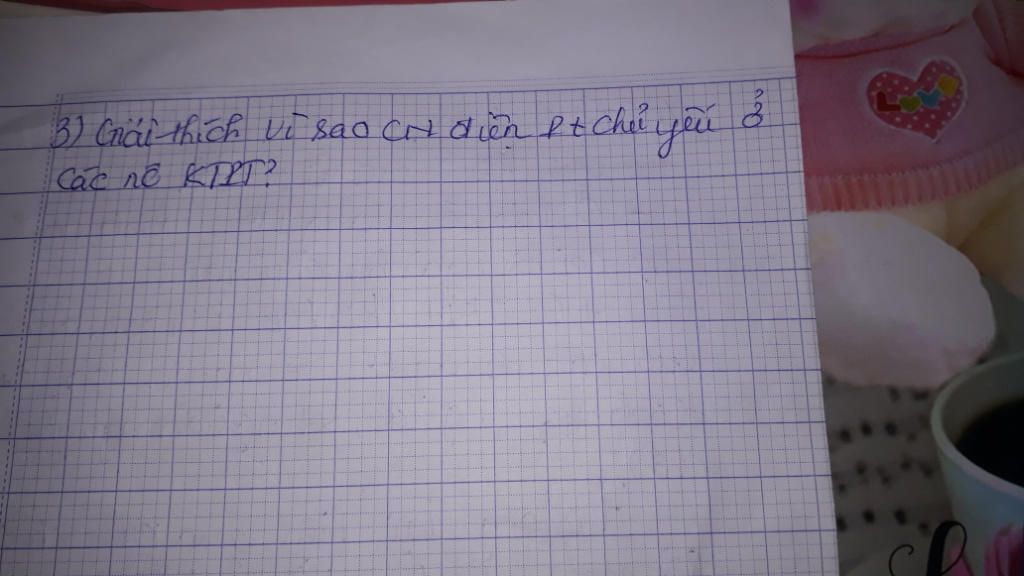 3) Giải thích vì sao CN điện Pt chủ yếu ở
các nc KTPT?
LOVE